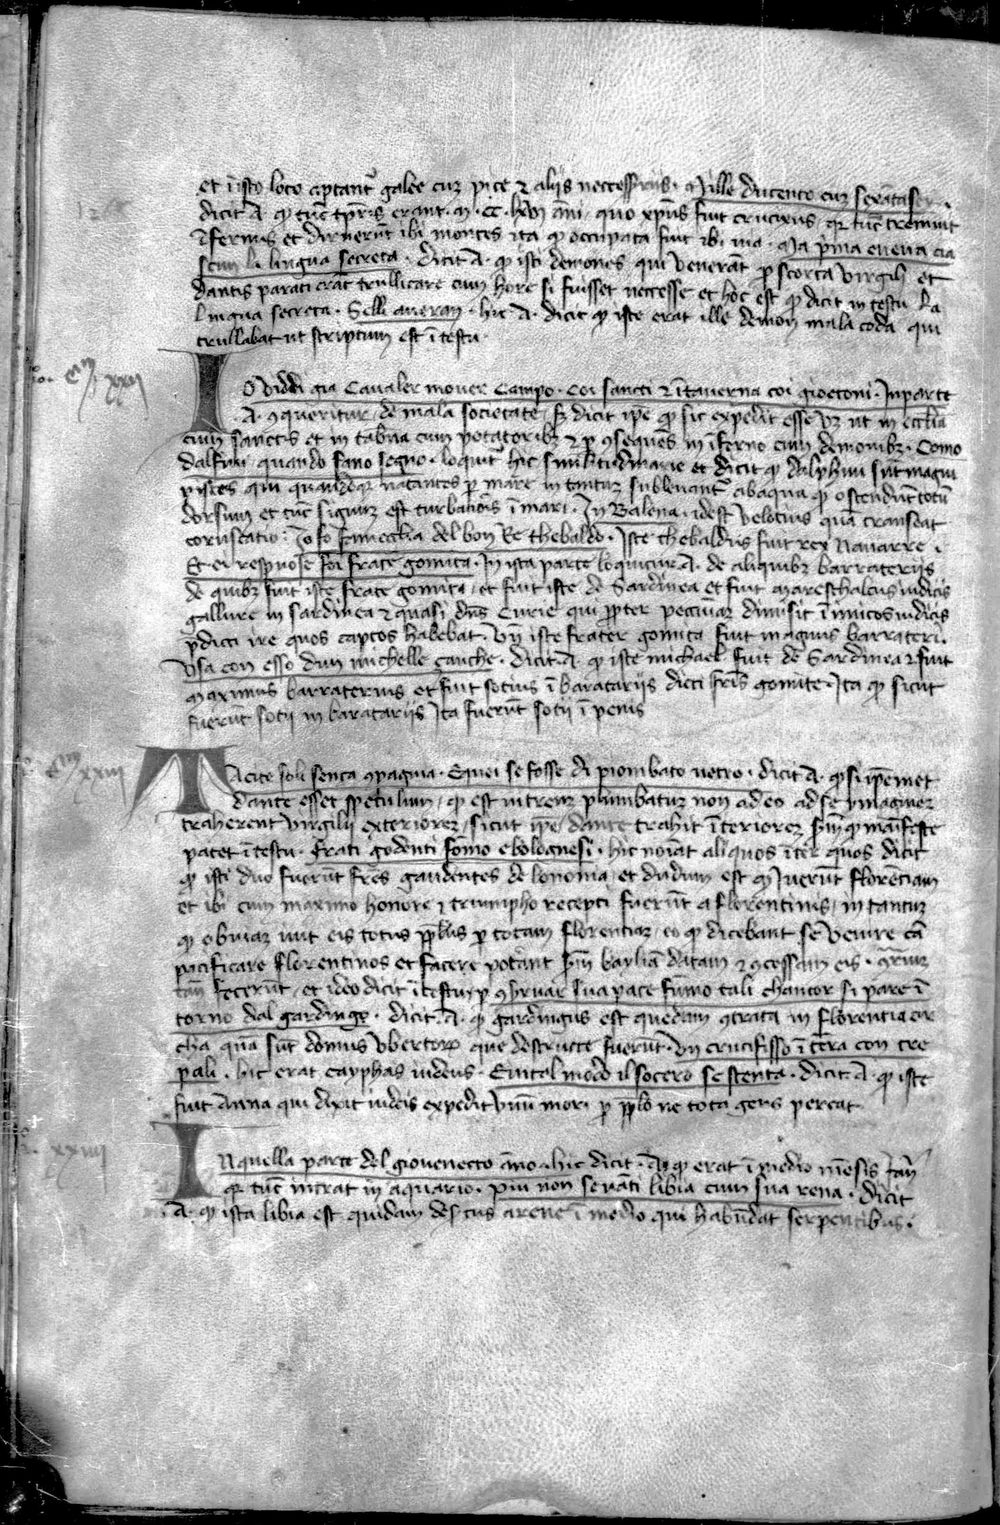 et ī isto loco aptant᷑ galee cuʒ pice ⁊ aliis neccessariis · Mille ducento cuʒ sexātasey ·
dicit A · qͥ tūc tp̄ris erant · M · CC · lxvi āni · quo xp̄us fuit crucixus qꝛ tūc tremuit
īfernus et diruerūt ibi montes ita qͥ occupata fuit ibi uia · Ma p̄ma eueua cia
scun li lingua secreta · dicit A · qͥ isti demones qui venerāt ꝑ scorta virgilii et
dantis parati erāt trullizare cum hore si fuisset neccesse et hoc est qͥ dicit in testu La
lingua secreta · Selli aueran · hic A · dicit qͥ iste erat ille demon mala coda qui
trullabat ut scriptum est ī testu ·
Cᵐ xxii
IO viddi gia Caualer mouer Campo · Coi sancti ⁊ ī tauerna coi giottoni · In parte
A · ꝯqueritur de mala societate / sʒ dicit ip̄e qͥ sic expedit esse vʒ ut in ecclia
cum sanctis et in tab̄na cum potatoribʒ ⁊ ꝑ ꝯsequēs in īferno cum demonibʒ · Como
dalfini quando fano segno · loquit᷑ hic similitudinarie et dicit qͥ dalphini sūt magni
pisces qui quandoqʒ natantes ꝑ mare in tantuʒ subleuant᷑ ab aqua qͥ ostendūt totū
dorsum et tūc signuʒ est turbatiōis ī mari · In Balena · idest velocius quā transeat
coruscatio · Io fo fameccha del bon Re thebaldo · Iste thebaldus fuit rex Nauarre ·
Et ei respuose foi frate gomita · In ista parte loquitur A · de aliquibʒ barrateriis
de quibʒ fuit iste frate gomita / et fuit iste de Sardinea et fuit mareschalcus iudicis
gallure in sardinea ⁊ quasi dn̄s Curie qui ꝓpter pecuniaʒ dimisit īimicos iudicis
p̄dicti ire quos captos habebat · Vn̄ iste frater gomita fuit magnus barrateri ·
Vsa con esso don michelle canche · dicit A · qͥ iste michael fuit de Sardinea ⁊ fuit
maximus barraterius et fuit sotius ī baratariis dicti fr̄is gomite · Ita qͥ sicut
fuerūt sotii in baratariis Ita fuerūt sotii ī penis
Cᵐ xxiii
TAcite soli senca ꝯpagnia · Equei se fosse di piombato uetro · dicit A · qͥ si ip̄emet
dante esset speculum / qͥ est uitreuʒ plumbatuʒ non adeo ad se ymagineʒ
traherent virgilii exterioreʒ / sicut ip̄e dante trahit īterioreʒ ſm̄ qͥ manifeste
patet ī testu · Frati godenti fomo e bolognesi · hic noīat aliquos īter quos dicit
qͥ isti duo fuerūt fr̄es gaudentes de bononia et dudum est qͥ Iuerūt florētiam
et ibi cum maximo honore ⁊ triumpho recepti fuerūt a florentinis / in tantuʒ
qͥ obuiaʒ iuit eis totus pp̄lus ꝑ totam florentiaʒ / eo qͥ dicebant se venire cā
pacificare florentinos et facere poterant ſm̄ bayliā datam ⁊ ꝯcessam eis · ꝯt̄riuʒ
tn̄ fecerūt / et ideo dicit ī testu ꝑ ꝯseruar sua pace fūmo tali chancor si pare ī
torno dal gardingo · dicit A · qͥ gardingus est quedam ꝯtrata in florentia cir
cha qua sūt domus vbertoꝝ que destructe fuerūt · Vn crucifisso ī tera con tre
pali · hic erat cayphas iudeus · E uital modo il socero se stenta · dicit A · qͥ iste
fuit Anna qui dixit iudeis expedit vnū mori ꝑ pp̄lo ne tota gens pereat
xxiiii
INquella parte del giouenecto āno · hic dicit · A · qͥ erat ī medio mēsis Ian̄
qꝛ tūc intrat in aquario · Piu non se uāti libia cum sua rena · dicit
· A · qͥ ista libia est quidam desertus arene ī modo qui habūdat serpentibus ·